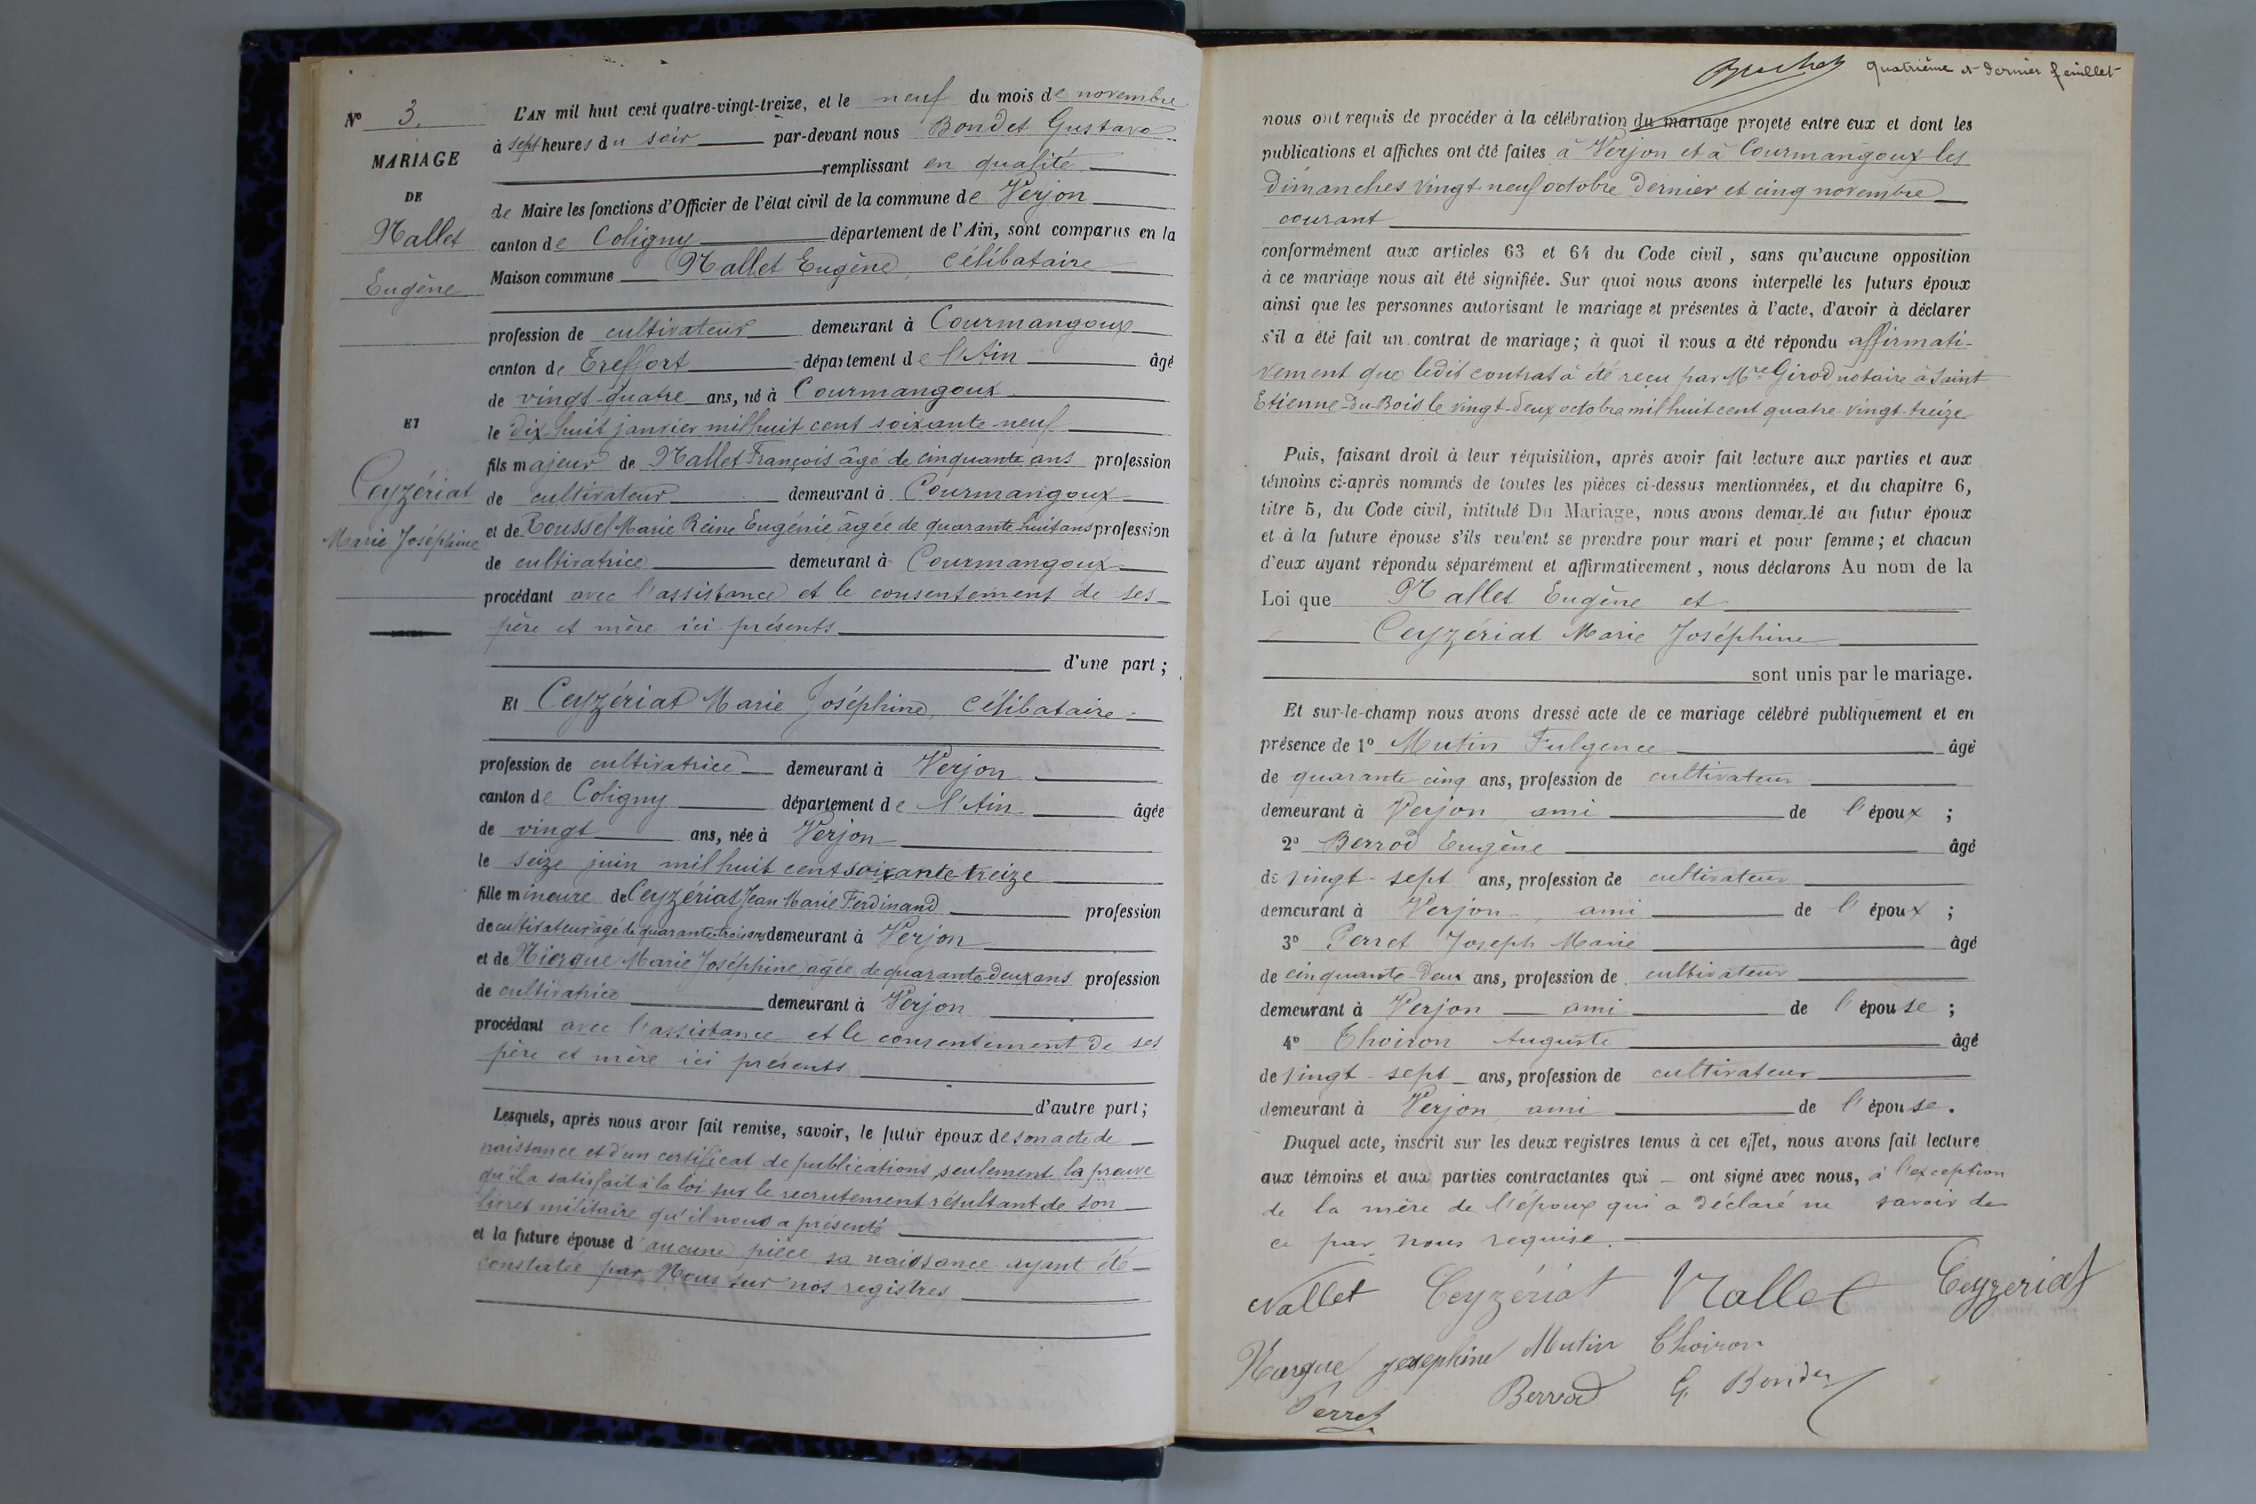 Nº 3.
MARIAGE
DE
Nallet
Eugène
ET
Ceyzériat
Marie Joséphine
L'AN mil huit cent quatre-vingt-treize, et le neuf du mois de novembre
à sept heures du soir par-devant nous Bondet Gustave
remplissant en qualité
de Maire les fonctions d'Officier de l'état civil de la commune de Verjon
canton de Coligny département de l'Ain, sont comparus en la
Maison commune Nallet Eugène, célibataire
profession de cultivateur demeurant à Courmangoux
canton de Treffort département de l'Ain âgé
de vingt-quatre ans, né à Courmangoux
le dix huit janvier mil huit cent soixante neuf
fils majeur de Nallet François âgé de cinquante ans profession
de cultivateur demeurant à Courmangoux
et de Roussel Marie Reine Eugénie, âgée de quarante-huit ans profession
de cultivatrice demeurant à Courmangoux
procédant avec l'assistance et le consentement de ses
père et mère ici présents
d'une part ;
Et Ceyzériat Marie Joséphine, célibataire
profession de cultivatrice demeurant à Verjon
canton de Coligny département de l'Ain âgée
de vingt ans, née à Verjon
le seize juin mil huit cent soixante-treize
fille mineure de Ceyzériat Jean Marie Ferdinand profession
de cultivateur âgé de quarante-trois ans demeurant à Verjon
et de Niergue Marie Joséphine, âgée de quarante-deux ans profession
de cultivatrice demeurant à Verjon
procédant avec l'assistance et le consentement de ses
père et mère ici présents
d'autre part ;
Lesquels, après nous avoir fait remise, savoir, le futur époux de son acte de
naissance et d'un certificat de publications, seulement la preuve
qu'il a satisfait à la loi sur le recrutement résultant de son
livret militaire qu'il nous a présenté
et la future épouse d'aucune pièce sa naissance ayant été
constatée par Nous sur nos registres
quatrième et dernier feuillet
nous ont requis de procéder à la célébration du mariage projeté entre eux et dont les
publications et affiches ont été faites à Verjon et à Courmangoux les
dimanches vingt neuf octobre dernier et cinq novembre
courant
conformément aux articles 63 et 64 du Code civil, sans qu'aucune opposition
à ce mariage nous ait été signifiée. Sur quoi nous avons interpellé les futurs époux
ainsi que les personnes autorisant le mariage et présentes à l'acte, d'avoir à déclarer
s'il a été fait un contrat de mariage ; à quoi il nous a été répondu affirmati-
vement que ledit contrat à été reçu par Mre Girod notaire à Saint
Etienne-du-Bois le vingt-deux octobre mil huit cent quatre-vingt-treize
Puis, faisant droit à leur réquisition, après avoir fait lecture aux parties et aux
témoins ci-après nommés de toutes les pièces ci-dessus mentionnées, et du chapitre 6,
titre 5, du Code civil, intitulé Du Mariage, nous avons demandé au futur époux
et à la future épouse s'ils veulent se prendre pour mari et pour femme ; et chacun
d'eux ayant répondu séparément et affirmativement, nous déclarons Au nom de la
Loi que Nallet Eugène et
Ceyzériat Marie Joséphine
sont unis par le mariage.
Et sur-le-champ nous avons dressé acte de ce mariage célébré publiquement et en
présence de 1º Mutin Fulgence âgé
de quarante cinq ans, profession de cultivateur
demeurant à Verjon ami de l'époux ;
2º Berrod Eugène âgé
de vingt-sept ans, profession de cultivateur
demeurant à Verjon, ami de l'époux ;
3º Perret Joseph Marie âgé
de cinquante-deux ans, profession de cultivateur
demeurant à Verjon ami de l'épouse ;
4º Thoiron Auguste âgé
de vingt-sept ans, profession de cultivateur
demeurant à Verjon, ami de l'épouse.
Duquel acte, inscrit sur les deux registres tenus à cet effet, nous avons fait lecture
aux témoins et aux parties contractantes qui ont signé avec nous, à l'exception
de la mère de l'époux qui a déclaré ne savoir de
ce par nous requise.
Nallet Ceyzériat Nallet Ceyzeriat
Niergue josephine Mutin Thoiron
Perret Berrod G. Bondet